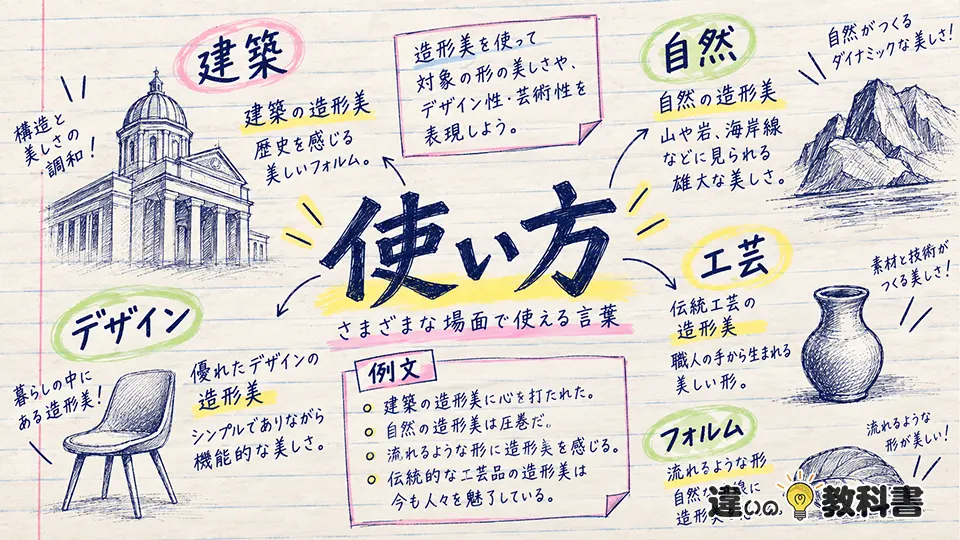 建築
建築の造形美
歴史を感じる
美しいフォルム。
構造と
美しさの
調和！
造形美を使って
対象の形の美しさや、
デザイン性・芸術性を
表現しよう。
自然
自然の造形美
山や岩、海岸線
などに見られる
雄大な美しさ。
自然がつくる
ダイナミックな美しさ！
使い方
さまざまな場面で使える言葉
デザイン
優れたデザインの
造形美
シンプルでありながら
機能的な美しさ。
暮らしの中に
ある造形美！
例文
建築の造形美に心を打たれた。
自然の造形美は圧巻だ。
流れるような形に造形美を感じる。
伝統的な工芸品の造形美は
今も人々を魅了している。
工芸
伝統工芸の
造形美
職人の手から生まれる
美しい形。
素材と技術が
つくる美しさ！
フォルム
流れるような形
自然な
造形
流れるような
形が美しい！
違いの教科書